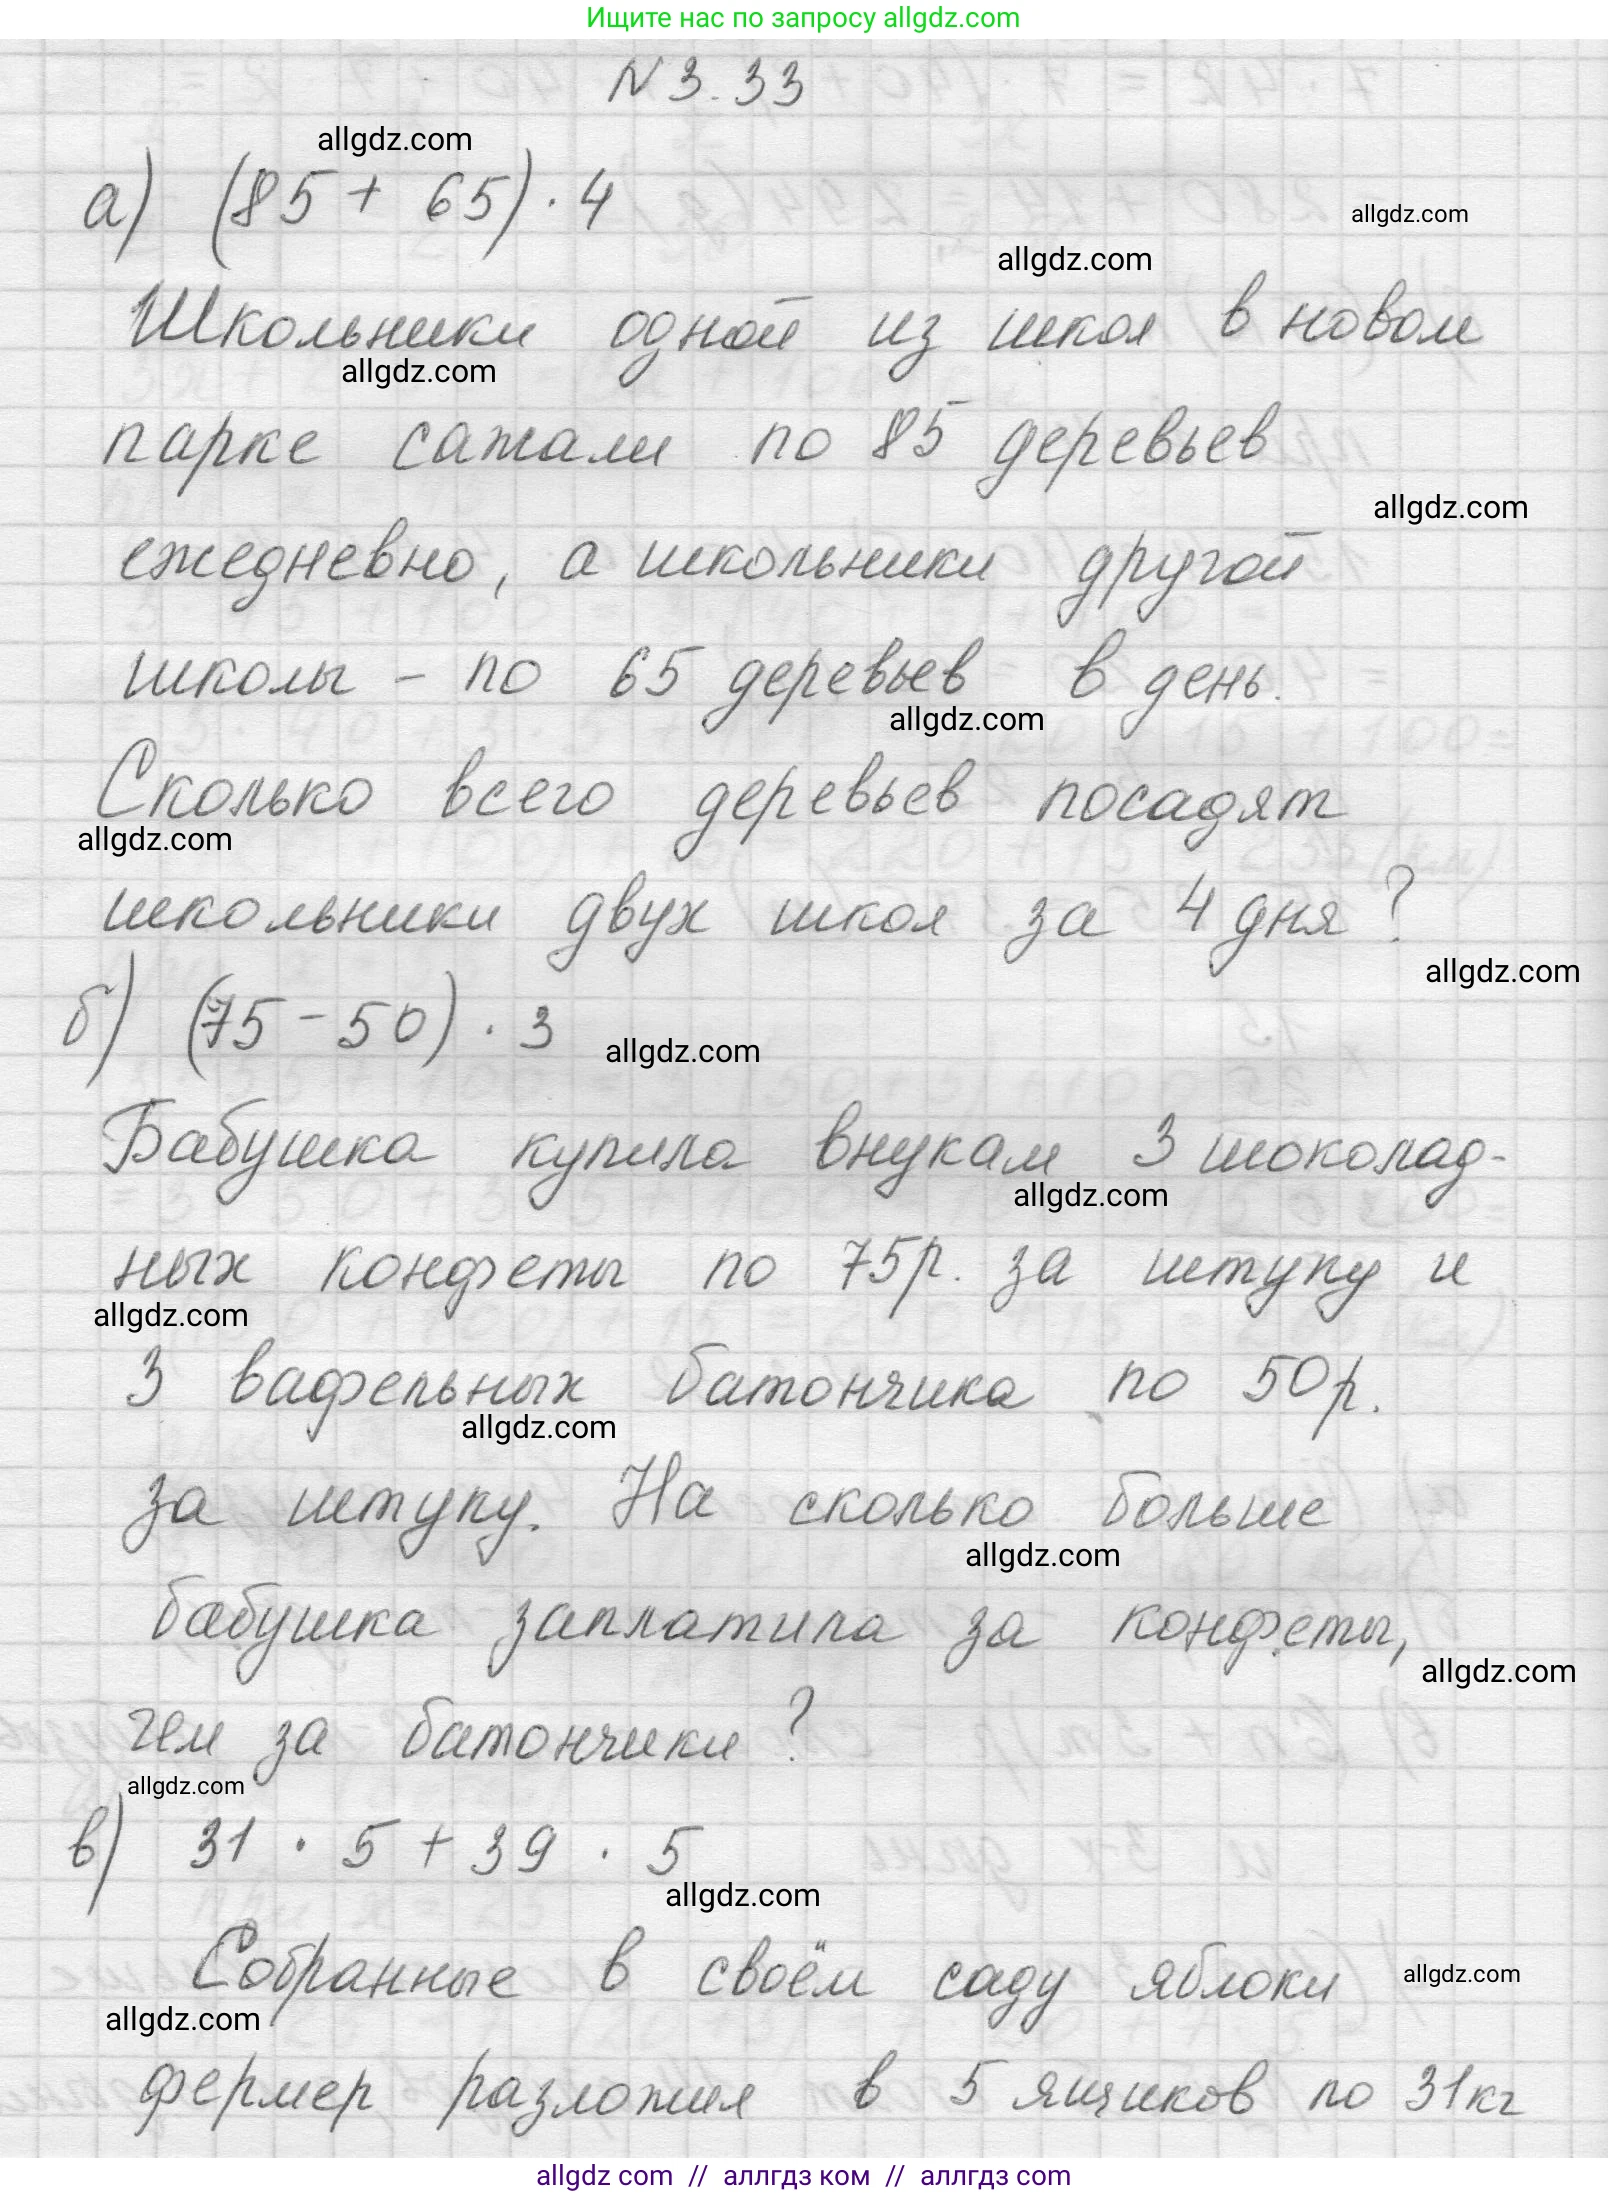 Ищите нас по запросу allgdz.com
N 3.33
allgdz.com
а) (85 + 65) · 4
allgdz.com
allgdz.com
Школьники одной из школ в новом
allgdz.com
парке сажали по 85 деревьев
allgdz.com
ежедневно, а школьники другой
школы - по 65 деревьев в день.
allgdz.com
Сколько всего деревьев посадят
allgdz.com
школьники двух школ за 4 дня?
allgdz.com
б) (75 - 50) · 3
allgdz.com
Бабушка купила внукам 3 шоколад-
allgdz.com
ных конфеты по 75р. за штуку и
allgdz.com
3 вафельных батончика по 50р.
allgdz.com
за штуку. На сколько больше
allgdz.com
бабушка заплатила за конфеты,
allgdz.com
чем за батончики?
allgdz.com
в) 31 · 5 + 39 · 5
allgdz.com
Собранные в своём саду яблоки
allgdz.com
allgdz.com
фермер разложил в 5 ящиков по 31кг
allgdz com // аллгдз ком // аллгдз com